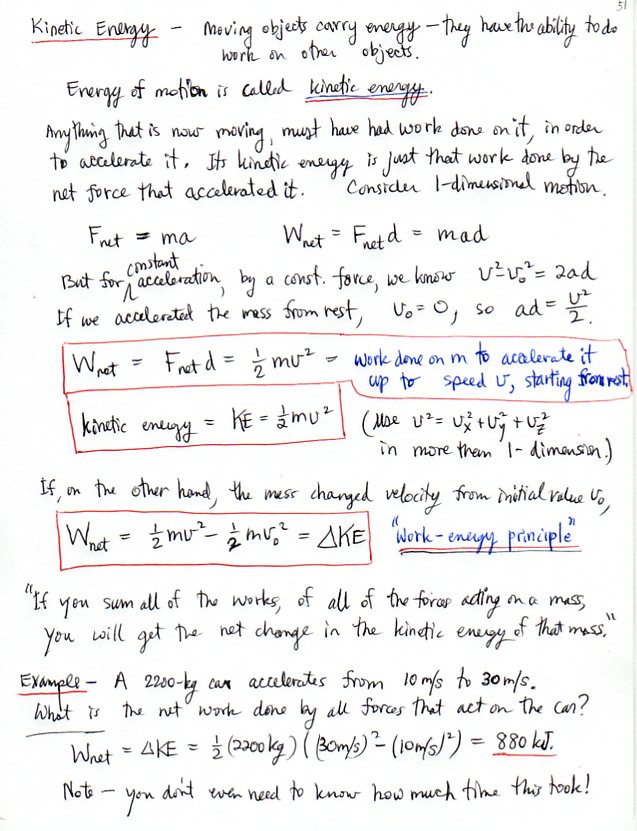 51
Kinetic Energy – Moving objects carry energy – they have the ability to do
work on other objects.
Energy of motion is called kinetic energy.
Anything that is now moving, must have had work done on it, in order
to accelerate it. Its kinetic energy is just that work done by the
net force that accelerated it. Consider 1-dimensional motion.
F_net = ma W_net = F_net d = mad
But for constant acceleration, by a const. force, we know v²-v₀² = 2ad
If we accelerated the mass from rest, v₀ = 0, so ad = v²/2.
W_net = F_net d = ½ mv² = work done on m to accelerate it
up to speed v, starting from rest.
kinetic energy = KE = ½ mv² (Use v² = v_x² + v_y² + v_z²
in more them 1-dimension.)
If, on the other hand, the mass changed velocity from initial value v₀,
W_net = ½ mv² – ½ mv₀² = ΔKE "Work-energy principle"
"If you sum all of the works, of all of the forces acting on a mass,
you will get the net change in the kinetic energy of that mass."
Example – A 2200-kg car accelerates from 10 m/s to 30 m/s.
What is the net work done by all forces that act on the car?
W_net = ΔKE = ½ (2200 kg) ((30m/s)² – (10m/s)²) = 880 kJ.
Note – you don't even need to know how much time this took!